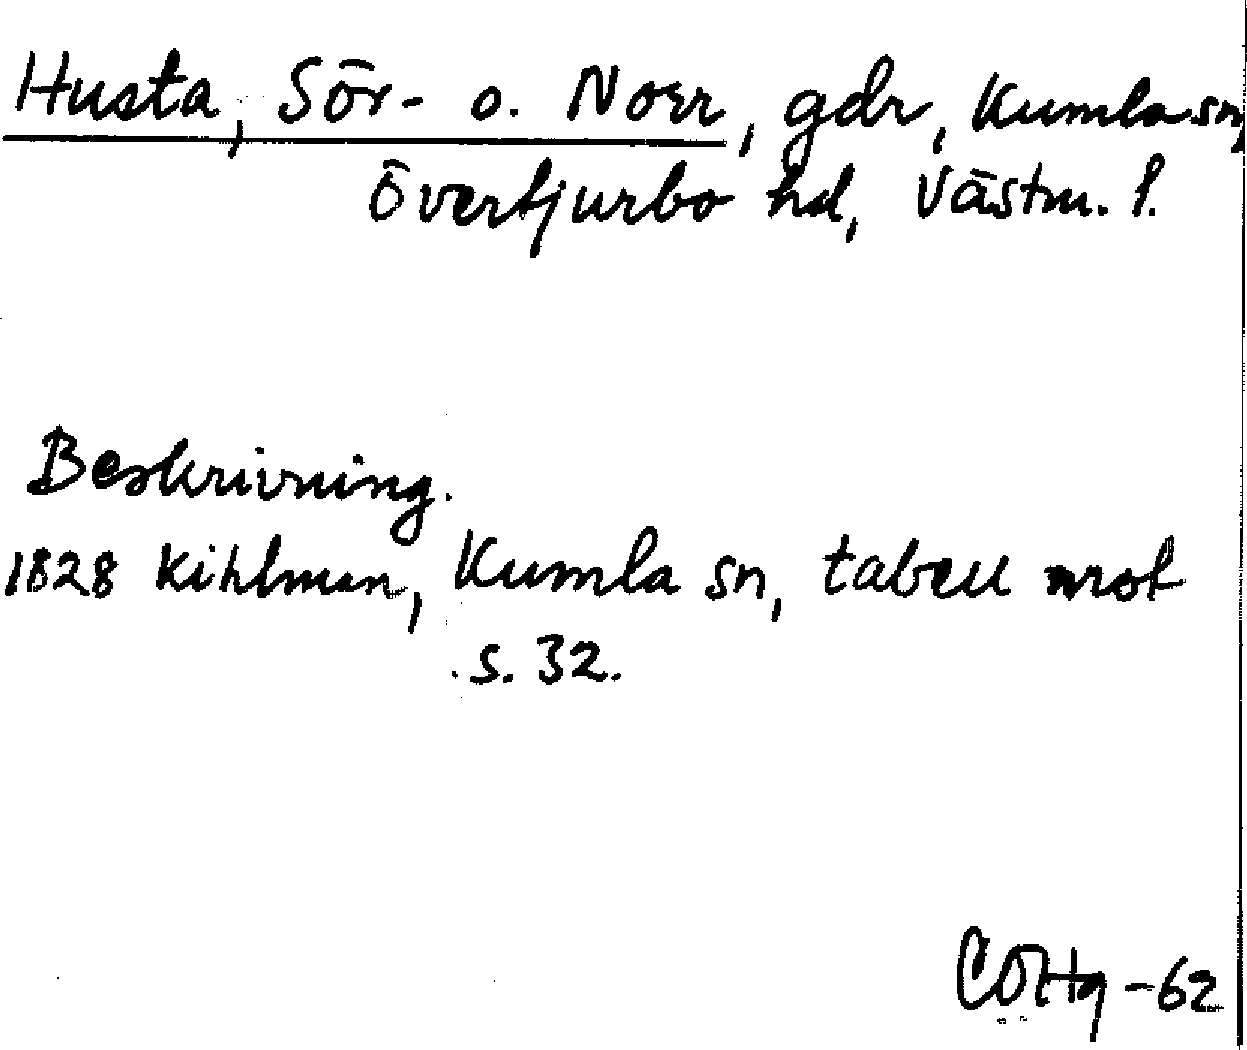 Husta, Sör- o. Norr, gdr, Kumla sn,
Övertjurbo hd, Västm. l.
Beskrivning.
1828 Kihlman, Kumla sn, tabell mot
s. 32.
-62